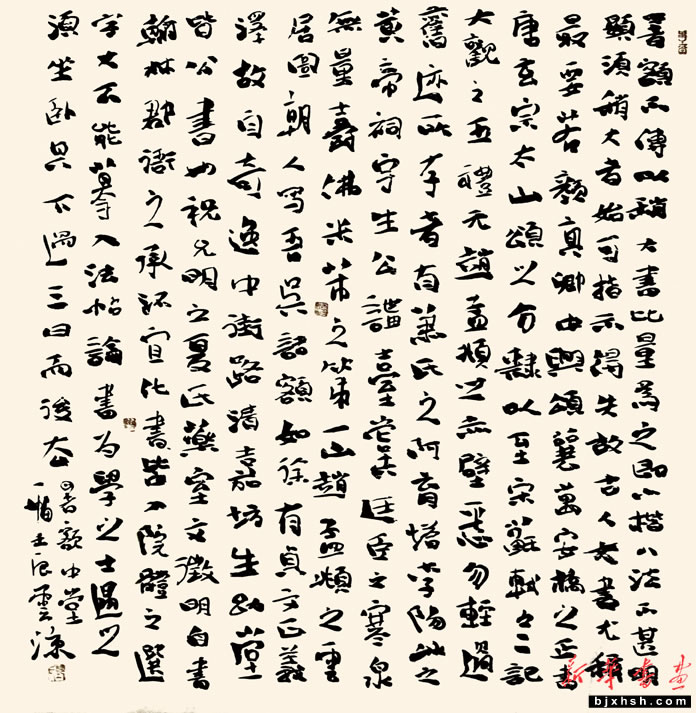 書額不傳以稍大書比量為之即小楷八法不甚明
顯須稍大者始可指示得失故古人大書尤稱
最要若顏真卿中興頌襄萬安橋以正書
唐玄宗太山頌以分隸以至宋蘇軾之二記
大觀之五禮元趙孟頫以赤壁惡勿輕過
舊跡所存者有蕭氏之阿育塔李陽冰之
黃帝祠宇生公講臺臣之寒泉
無量壽佛米芾之第一山趙孟頫之重
居圖朝人寫吾吳詔額如徐有貞文正義
澤故自奇逸中街路清嘉坊生幽堂
皆公書也祝允明之夏氏藥室文徵明自書
翰林郡之承流宣化書皆入院體之選
字大不能摹入法帖論書為學之士遇之
須坐臥其下過三日而後去
書額中堂
一幅 雲涼
新華書畫
www.bjxhsh.com